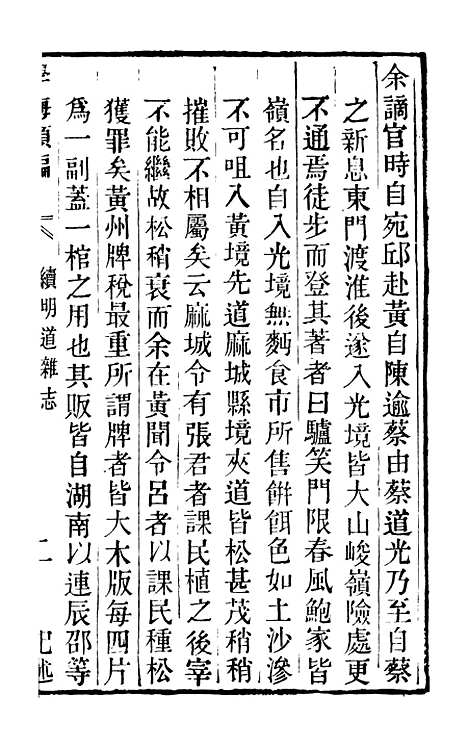 余謫官時自宛邱赴黃自陳逾蔡由蔡道光乃至自蔡
之新息東門渡淮後遂入光境皆大山峻嶺險處更
不通焉徒步而登其著者曰驢笑門限春風鮑家皆
嶺名也自入光境無麫食市所售餅餌色如土沙滲
不可咀入黃境先道麻城縣境夾道皆松甚茂稍稍
摧敗不相屬矣云麻城令有張君者課民植之後宰
不能繼故松稍衰而余在黃聞令呂者以課民種松
獲罪矣黃州牌稅最重所謂牌者皆大木版每四片
爲一副蓋一棺之用也其販皆自湖南以連辰邵等
學海類編
續明道雜志
二
記述